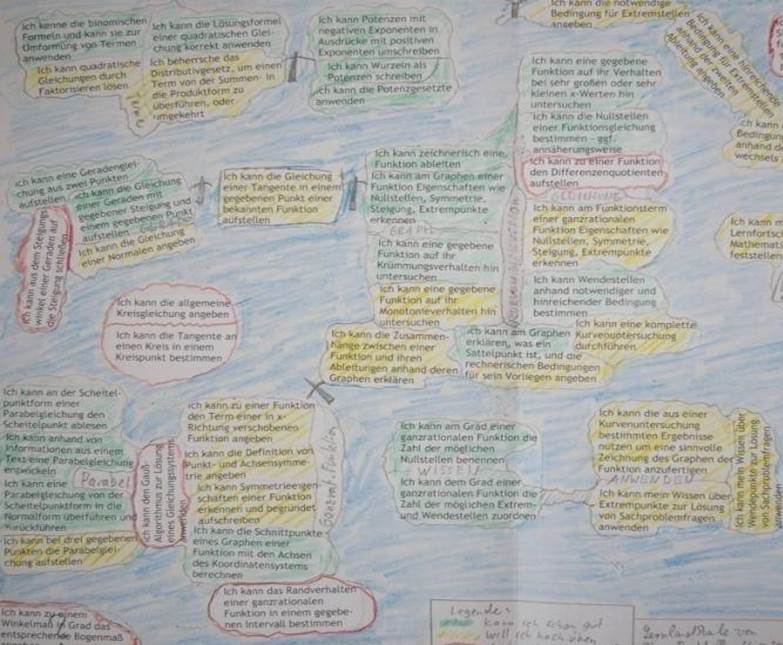 Ich kenne die binomischen
Formeln und kann sie zur
Umformung von Termen
anwenden
Ich kann quadratische
Gleichungen durch
Faktorisieren lösen
Terme
Ich kann die Lösungsformel
einer quadratischen Glei-
chung korrekt anwenden
Ich beherrsche das
Distributivgesetz, um einen
Term von der Summen- in
die Produktform zu
überführen, oder
umgekehrt
Ich kann Potenzen mit
negativen Exponenten in
Ausdrücke mit positiven
Exponenten umschreiben
Ich kann Wurzeln als
Potenzen schreiben
Ich kann die Potenzgesetzte
anwenden
Ich kann die notwendige
Bedingung für Extremstellen
angeben
Ich kann eine hinreichende
Bedingung für Extremstellen
anhand der zweiten
Ableitung angeben
Ich kann
Bedingun
anhand d
wechsels
Ich kann eine gegebene
Funktion auf ihr Verhalten
bei sehr großen oder sehr
kleinen x-Werten hin
untersuchen
Ich kann die Nullstellen
einer Funktionsgleichung
bestimmen - ggf.
annäherungsweise
Ich kann zu einer Funktion
den Differenzenquotienten
aufstellen
Ich kann am Funktionsterm
einer ganzrationalen
Funktion Eigenschaften wie
Nullstellen, Symmetrie,
Steigung, Extrempunkte
erkennen
Ich kann Wendestellen
anhand notwendiger und
hinreichender Bedingung
bestimmen
Ich kann eine komplette
Kurvenuntersuchung
durchführen
Ich kann eine Geradenglei-
chung aus zwei Punkten
aufstellen
Ich kann die Gleichung
einer Geraden mit
gegebener Steigung und
einem gegebenen Punkt
aufstellen
Ich kann die Gleichung
einer Normalen angeben
Ich kann aus dem Steigungs-
winkel einer Geraden auf
die Steigung schließen
Ich kann die Gleichung
einer Tangente in einem
gegebenen Punkt einer
bekannten Funktion
aufstellen
Ich kann zeichnerisch eine
Funktion ableiten
Ich kann am Graphen einer
Funktion Eigenschaften wie
Nullstellen, Symmetrie,
Steigung, Extrempunkte
erkennen
GRAPH
Ich kann eine gegebene
Funktion auf ihr
Krümmungsverhalten hin
untersuchen
Ich kann eine gegebene
Funktion auf ihr
Monotonieverhalten hin
untersuchen
Ich kann die Zusammen-
hänge zwischen einer
Funktion und ihren
Ableitungen anhand deren
Graphen erklären
Ich kann am Graphen
erklären, was ein
Sattelpunkt ist, und die
rechnerischen Bedingungen
für sein Vorliegen angeben
Ich kann m
Lernfortsch
Mathemat
feststellen
Ich kann die allgemeine
Kreisgleichung angeben
Ich kann die Tangente an
einen Kreis in einem
Kreispunkt bestimmen
Ich kann an der Scheitel-
punktform einer
Parabelgleichung den
Scheitelpunkt ablesen
Ich kann anhand von
Informationen aus einem
Text eine Parabelgleichung
entwickeln
Parabel
Ich kann eine
Parabelgleichung von der
Scheitelpunktform in die
Normalform überführen und
zurückführen
Ich kann bei drei gegebenen
Punkten die Parabelglei-
chung aufstellen
Ich kann den Gauß-
Algorithmus zur Lösung
eines Gleichungssystems
anwenden
Ich kann zu einer Funktion
den Term einer in x-
Richtung verschobenen
Funktion angeben
Ich kann die Definition von
Punkt- und Achsensymme-
trie angeben
Ich kann Symmetrieeigen-
schaften einer Funktion
erkennen und begründet
aufschreiben
Ich kann die Schnittpunkte
eines Graphen einer
Funktion mit den Achsen
des Koordinatensystems
berechnen
Ich kann das Randverhalten
einer ganzrationalen
Funktion in einem gegebe-
nen Intervall bestimmen
Ich kann am Grad einer
ganzrationalen Funktion die
Zahl der möglichen
Nullstellen benennen
WISSEN
Ich kann dem Grad einer
ganzrationalen Funktion die
Zahl der möglichen Extrem-
und Wendestellen zuordnen
Ich kann die aus einer
Kurvenuntersuchung
bestimmten Ergebnisse
nutzen um eine sinnvolle
Zeichnung des Graphen der
Funktion anzufertigen
ANWENDEN
Ich kann mein Wissen über
Extrempunkte zur Lösung
von Sachproblemfragen
anwenden
Ich kann mein Wissen über
Wendepunkte zur Lösung
von Sachproblemfragen
anwenden
Ich kann zu einem
Winkelmaß in Grad das
entsprechende Bogenmaß
Legende:
kann ich schon gut
will ich noch üben